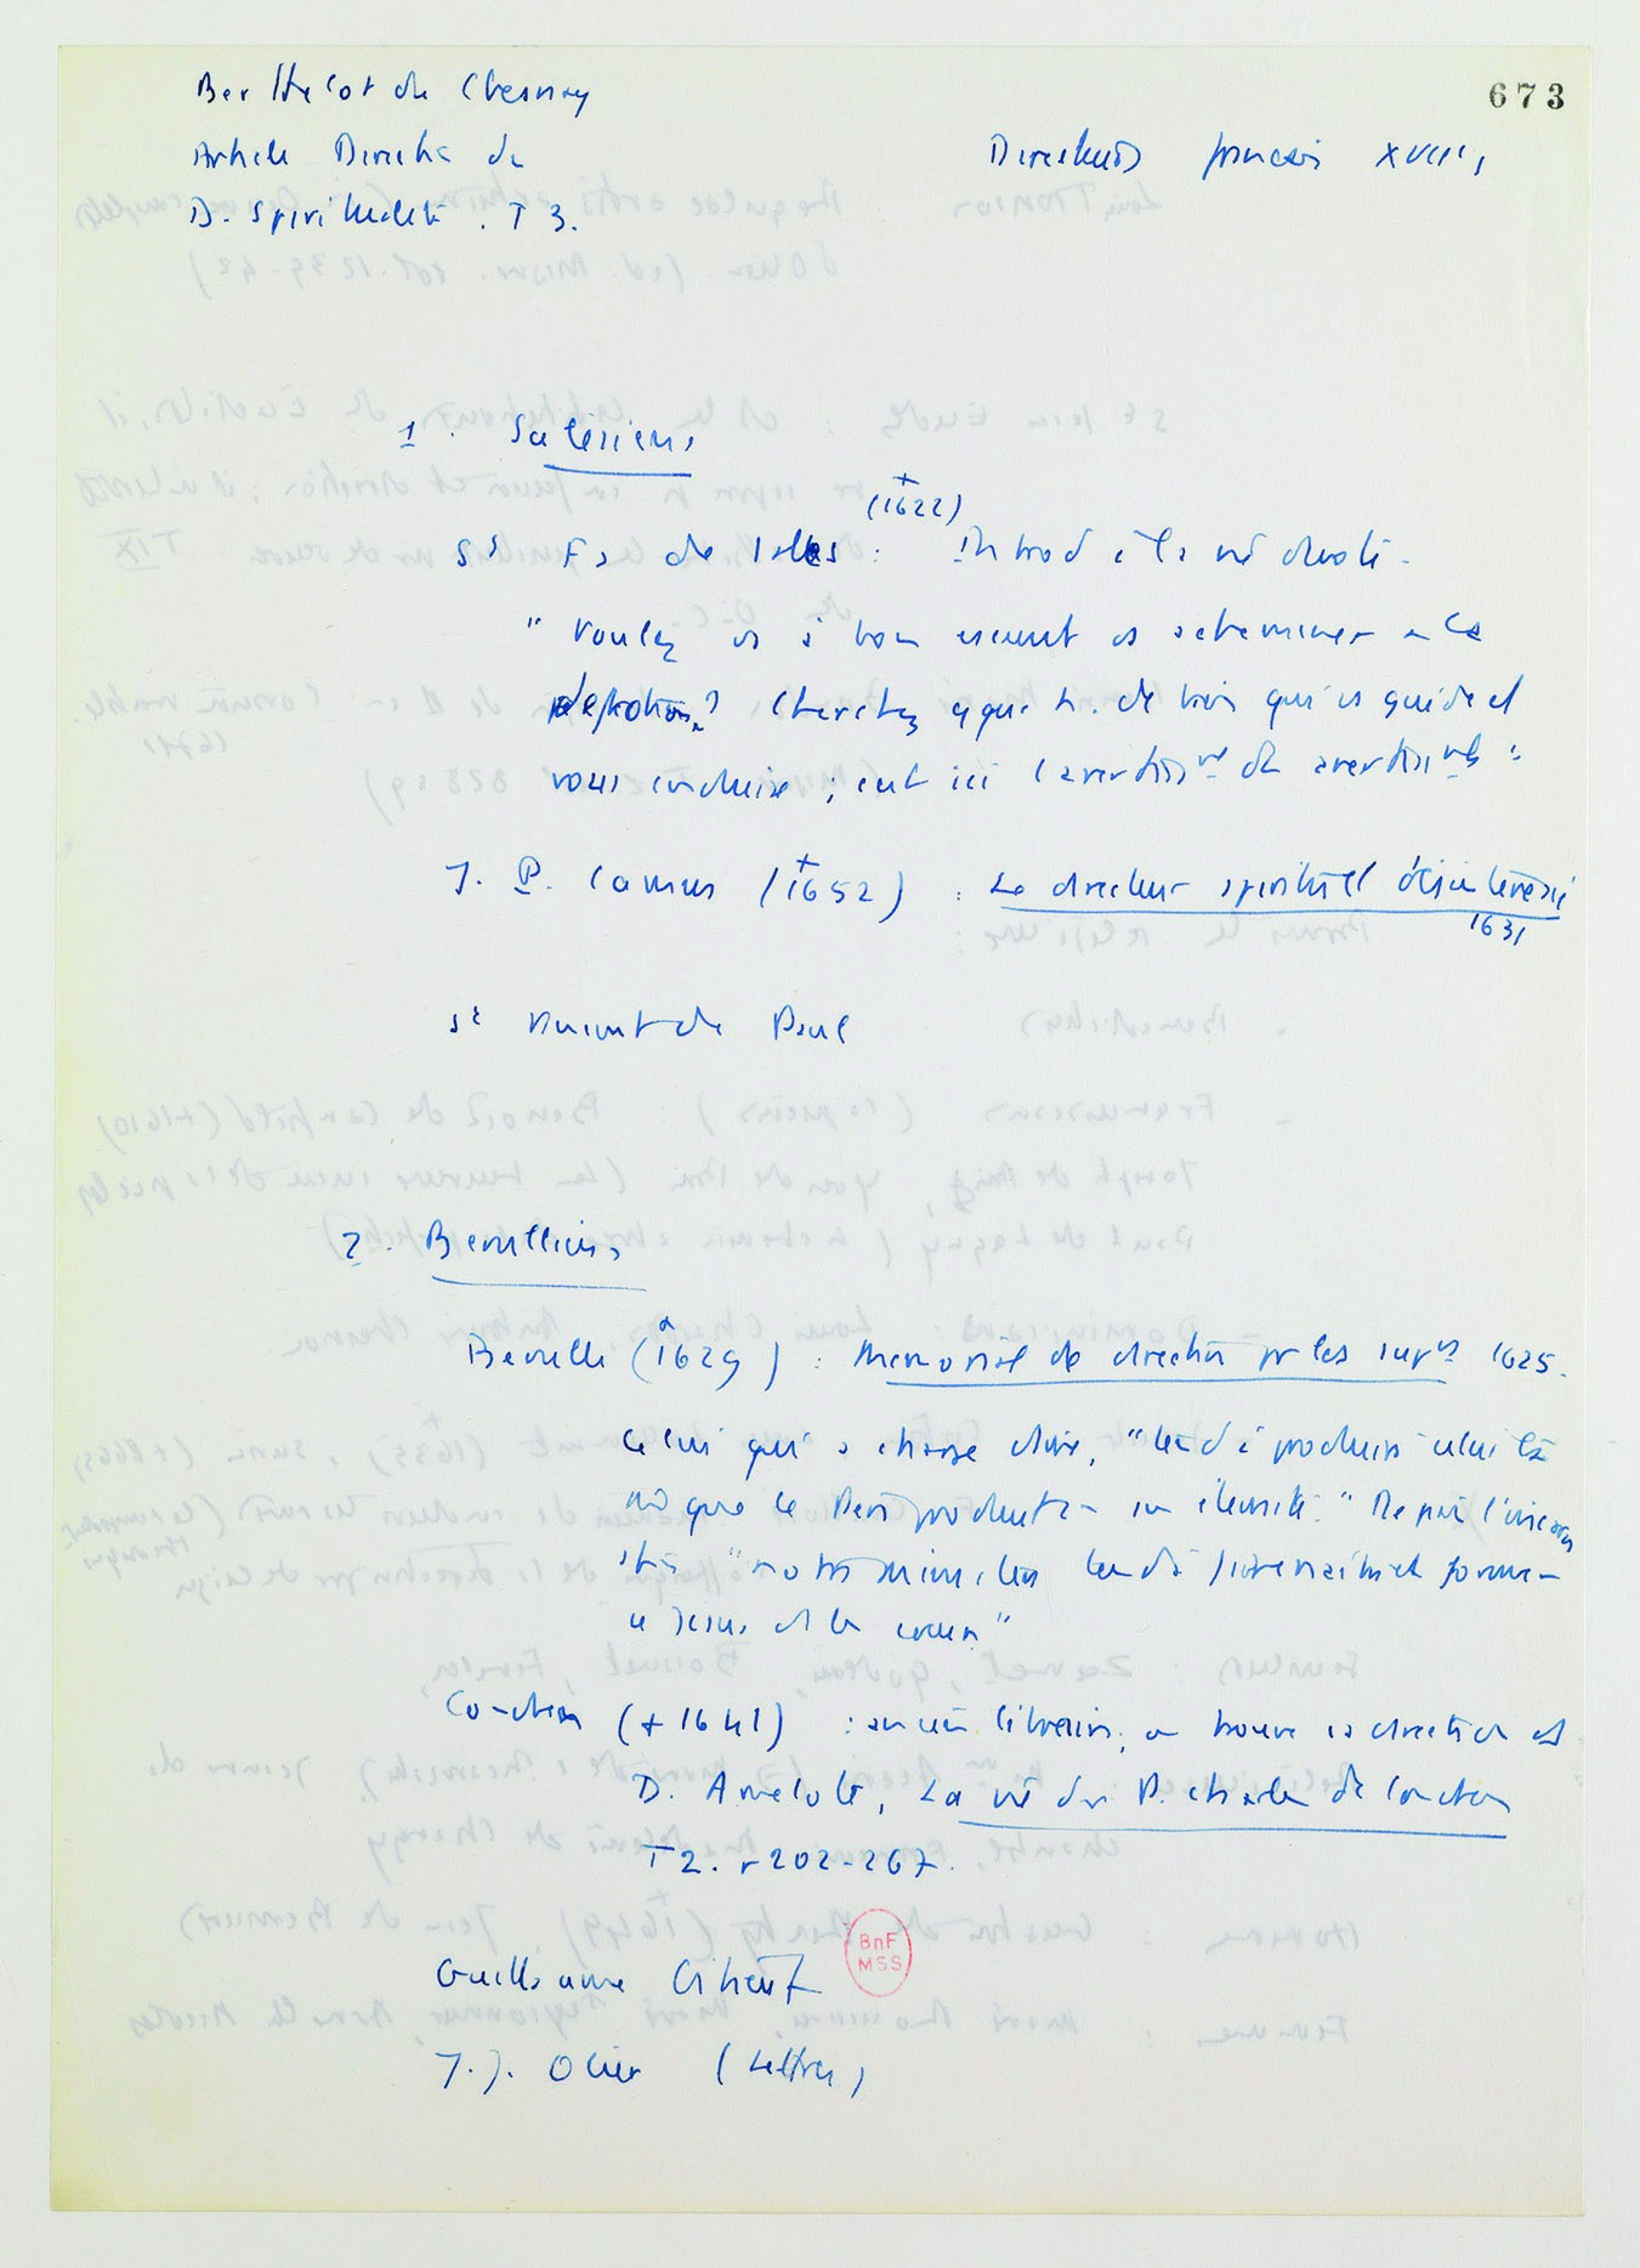 673
Berthelot du Chesnay
Article Directn du
D. Spiritualité. T 3.
Directeurs français XVIIe s
1. Salésiens
St Fs de Sales (†1622) : Introd à la vie dévote.
" Voulez vs à bon escient vs acheminer à la
dévotion ? Cherchez qque h. de bien qui vs guide et
vous conduise ; c'est ici l'avertissmt des avertissmts "
J. P. Camus (†1652) : Le directeur spirituel désintéressé
1631
St Vincent de Paul
2. Berulliens
Berulle (†1629) : Memorial de direction pr les suprs 1625.
Celui qui a charge d'âme, "tend à produire celui là
mê que le Père produit en son éternité." De par l'incarna
tion "notre ministère tend à faire naître et former
Jesus ds les cœurs"
Condren (+ 1641) : aucun libraire, on trouve sa direction ds
D. Amelote, La vie du P. Charles de Condren
T 2. p 202-267.
Guillaume Gibieuf
J.J. Olier (Lettres)
BnF
MSS